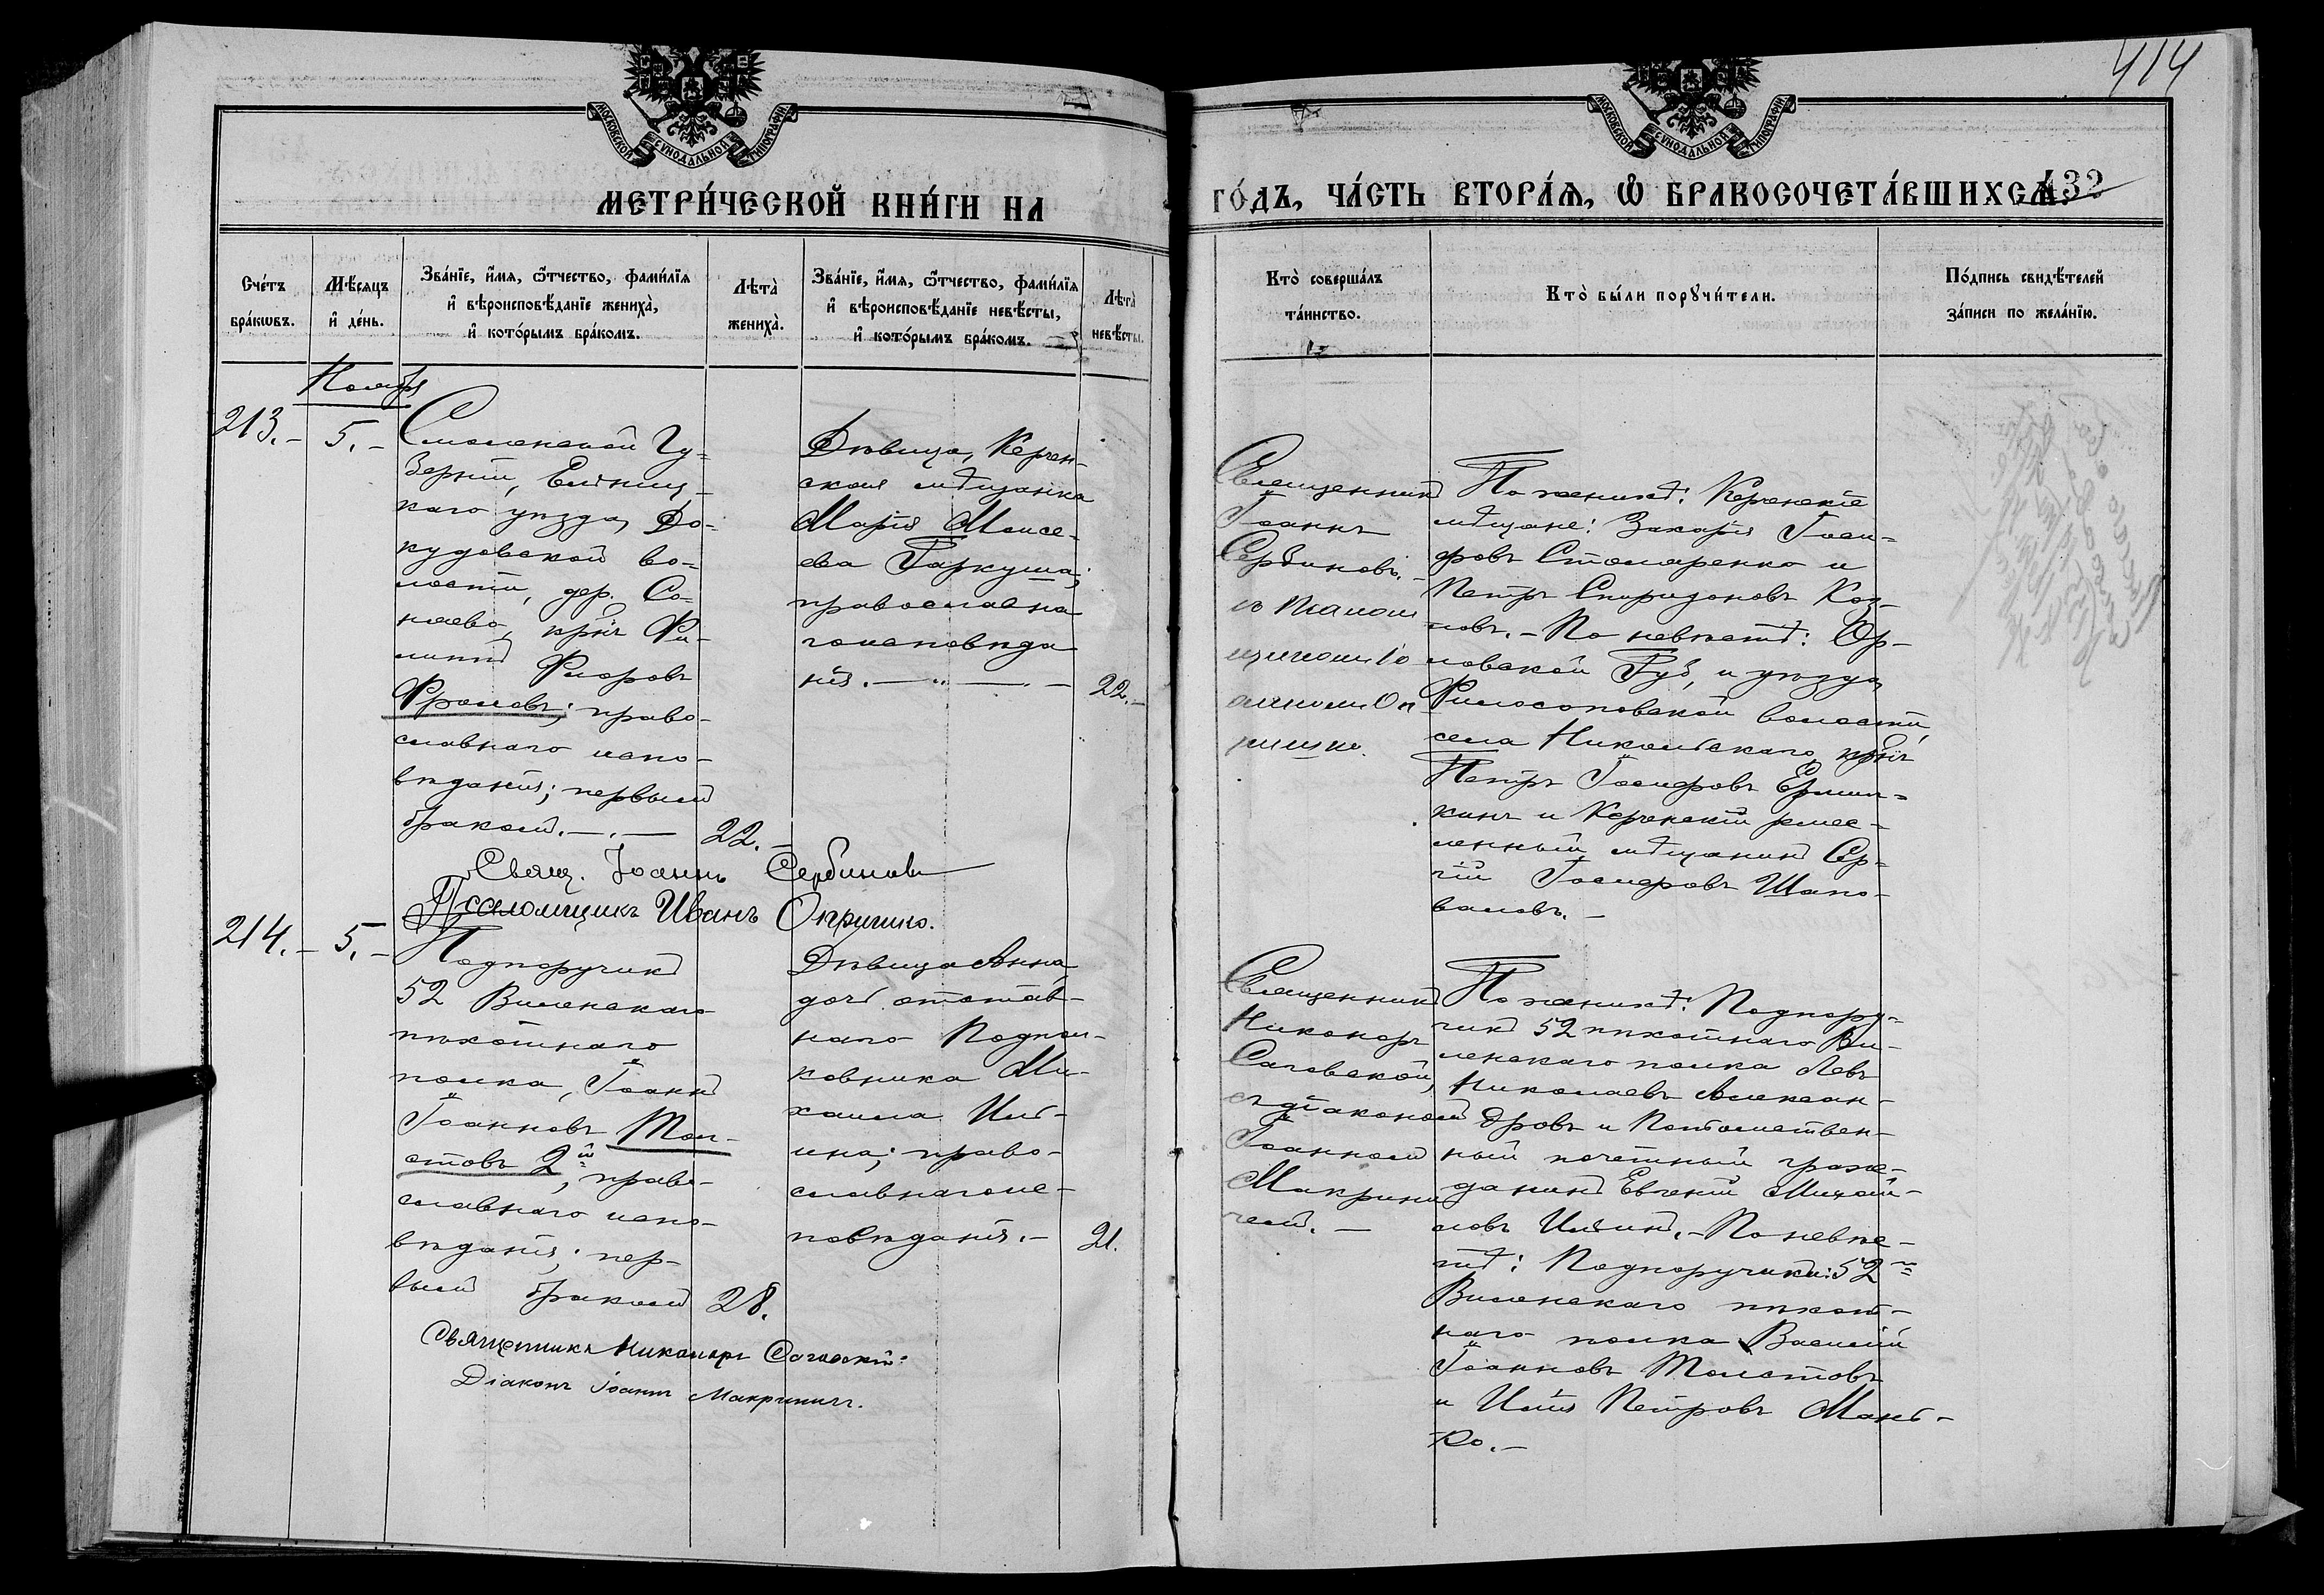 414
МОСКОВСКОЙ СУНОДАЛЬНОЙ ТИПОГРАФІИ
МОСКОВСКОЙ СУНОДАЛЬНОЙ ТИПОГРАФІИ
МЕТРИ́ЧЕСКОЙ КНИ́ГИ НА
ГО́ДЪ, ЧА́СТЬ ВТОРА́Я, Ѿ БРАКОСОЧЕТА́ВШИХСЯ.
432
Сче́тъ
бра́кѡвъ.
Мѣ́сяцъ
и҆ де́нь.
Зва́нїе, и҆́мя, ѻ҆́тчество, фами́лїя
и҆ вѣроисповѣ́данїе жениха̀,
и҆ кото́рымъ бра́комъ.
Лѣта̀
жениха̀.
Зва́нїе, и҆́мя, ѻ҆́тчество, фами́лїя
и҆ вѣроисповѣ́данїе невѣ́сты,
и҆ кото́рымъ бра́комъ.
Лѣта̀
невѣ́сты.
Кто̀ соверша́лъ
та́инство.
Кто̀ бы́ли порꙋчи́тели.
По́дпись свидѣ́телей
за́писи по жела́нїю.
Ноября
213.-
5.-
Смоленской Гу=
берніи, Ельниц-
каго уѣзда, До-
кудовской во=
лости, дер. Со-
нѣево, крнъ Фи-
липпъ Флоровъ
Фроловъ; право-
славнаго испо-
вѣданія; первымъ
бракомъ.-.-
22.-
Дѣвица, Керчен-
ская мѣщанка
Марія Моисе-
ева Гаркуша;
православна
гоисповѣда
нія.-"-.-
22.-
Священникъ
Іоаннъ
Сербиновъ.-
съ Псалом
щикомъ Іо
анномъ Оп
ришко.
По женихѣ: Керченскіе
мѣщане: Захарія Іоси-
фовъ Столяренко и
Петръ Спиридоновъ Коз-
ловъ.- По невѣстѣ: Ор-
ловской Губ, и уѣзда,
села Никольскаго, крнъ
Петръ Іосифовъ Ермил=
кинъ и Керченскій ремес-
ленный мѣщанинъ Сер-
гій Іосифовъ Шапо-
валовъ.-
Свящ. Іоаннъ Сербиновъ
Псаломщикъ Иванъ Опришко.
214.-
5.-
Подпоручикъ
52 Виленскаго
пѣхотнаго
полка, Іоаннъ
Іоанновъ Тол-
стовъ 2й, право-
славнаго испо-
вѣданія; пер-
вымъ бракомъ
28.
Дѣвица Анна,
дочь отстав-
наго Подпол-
ковника Ми-
хаила Иль-
ина; право-
славнагоис-
повѣданія.-
21.
Священникъ
Никаноръ
Саговской,
съ діакономъ
Іоанномъ
Макрини
чемъ.-
По женихѣ: Подпору-
чикъ 52 пѣхотнаго Ви-
ленскаго полка Левъ
Николаевъ Алексан-
дровъ и Потомствен-
ный почетный граж-
данинъ Евгеній Михай-
ловъ Ильинъ.- По невѣ-
стѣ: Подпоручики: 52го
Виленскаго пѣхот-
наго полка Василій
Іоанновъ Толстовъ
и Илія Петровъ Мань-
ко.-
Священникъ Никаноръ Саговскій.
Діаконъ Іоаннъ Макриничъ.